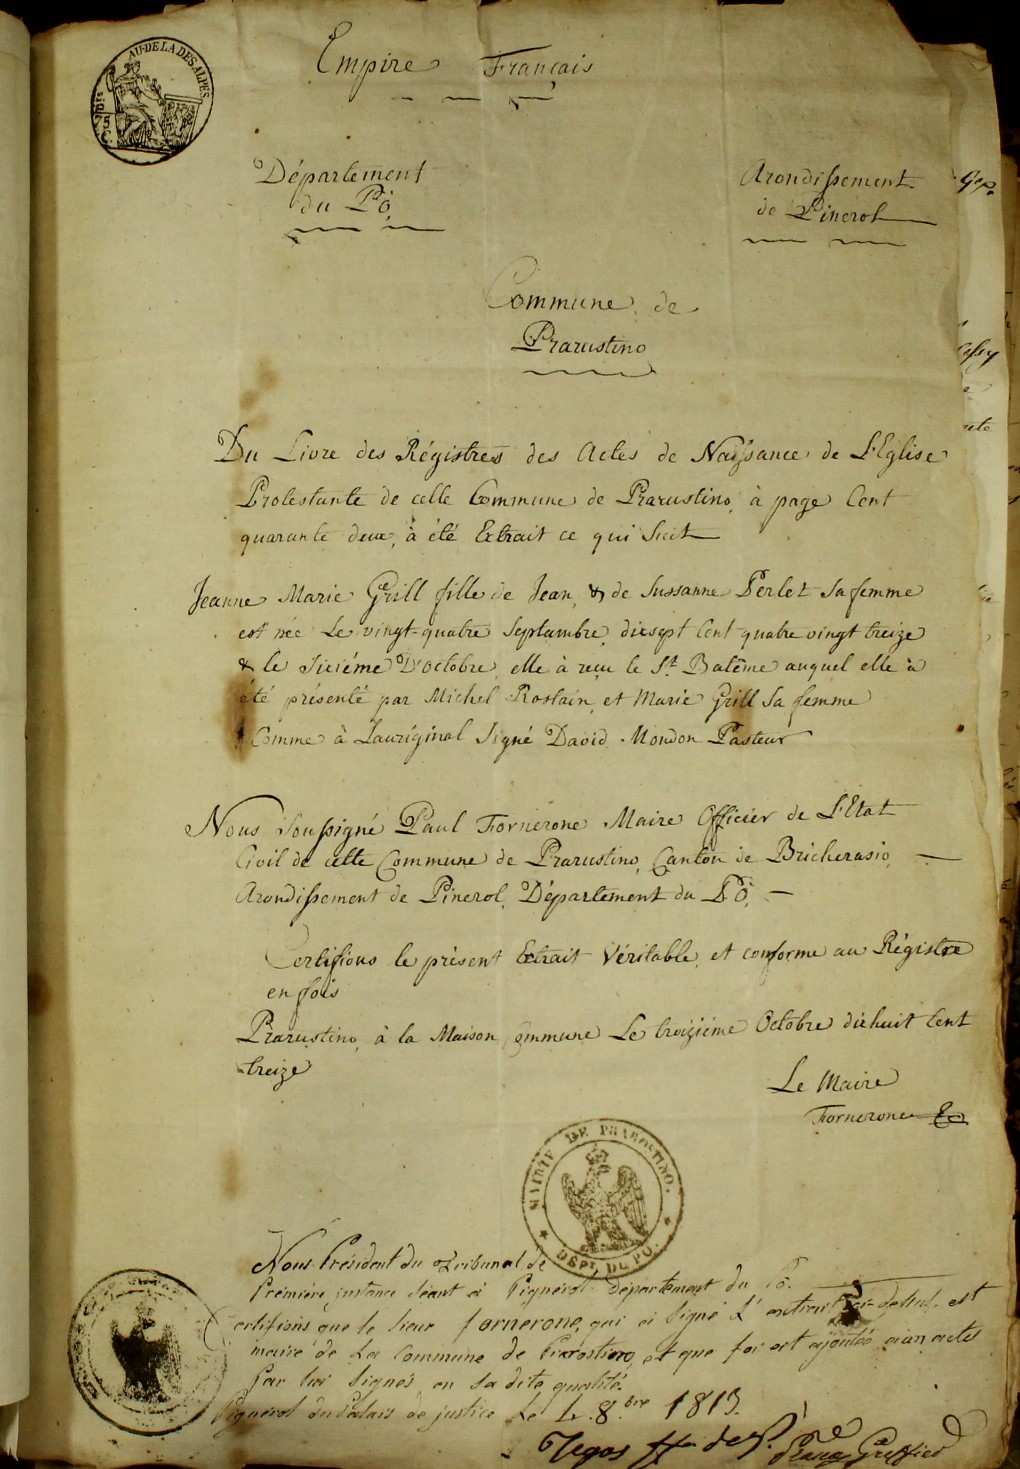 AU-DELA DES ALPES
Empire Français
Département
du Pô
Arondissement
de Pinerol
Commune de
Prarustino
Du Livre des Régistres des Actes de Naissance de L'Eglise
Protestante de cette Commune de Prarustino, à page Cent
quarante deux, à été Extrait ce qui Suit
Jeanne Marie Grill fille de Jean, & de Sussanne Perlet sa femme
est née Le vingt-quatre Septambre, dixsept Cent quatre vingt treize
& le Sixiéme D'octobre, elle à reçu le St. Batême auquel elle à
été présenté par Michel Rostain, et Marie Grill Sa femme
Comme à Lauriginal Signé David Mondon Pasteur
Nous Soussigné Paul Fornerone Maire Officier de L'Etat
Civil de cette Commune de Prarustino, Canton de Bricherasio,
Arondissement de Pinerol, Département du Pô,
Certifions le présent Extrait Véritable, et conforme au Régistre
en fois
Prarustino, à la Maison Commune Le troiziéme Octobre dixhuit Cent
treize
Le Maire
Fornerone
MAIRIE DE PRAROSTINO.
DEPt. DU PO.
Nous Président du Tribunal de
Première instance Séant à Pignerol département du Po.
Certifions que le Sieur fornerone, qui à Signé L'extrait ci-dessus est
maire de La Commune de Prarostino, et que foi est ajoutée aux actes
Par lui Signés en Sa dite qualité.
Pignerol du Palais de justice Le 4. 8.bre 1813.
Greffier